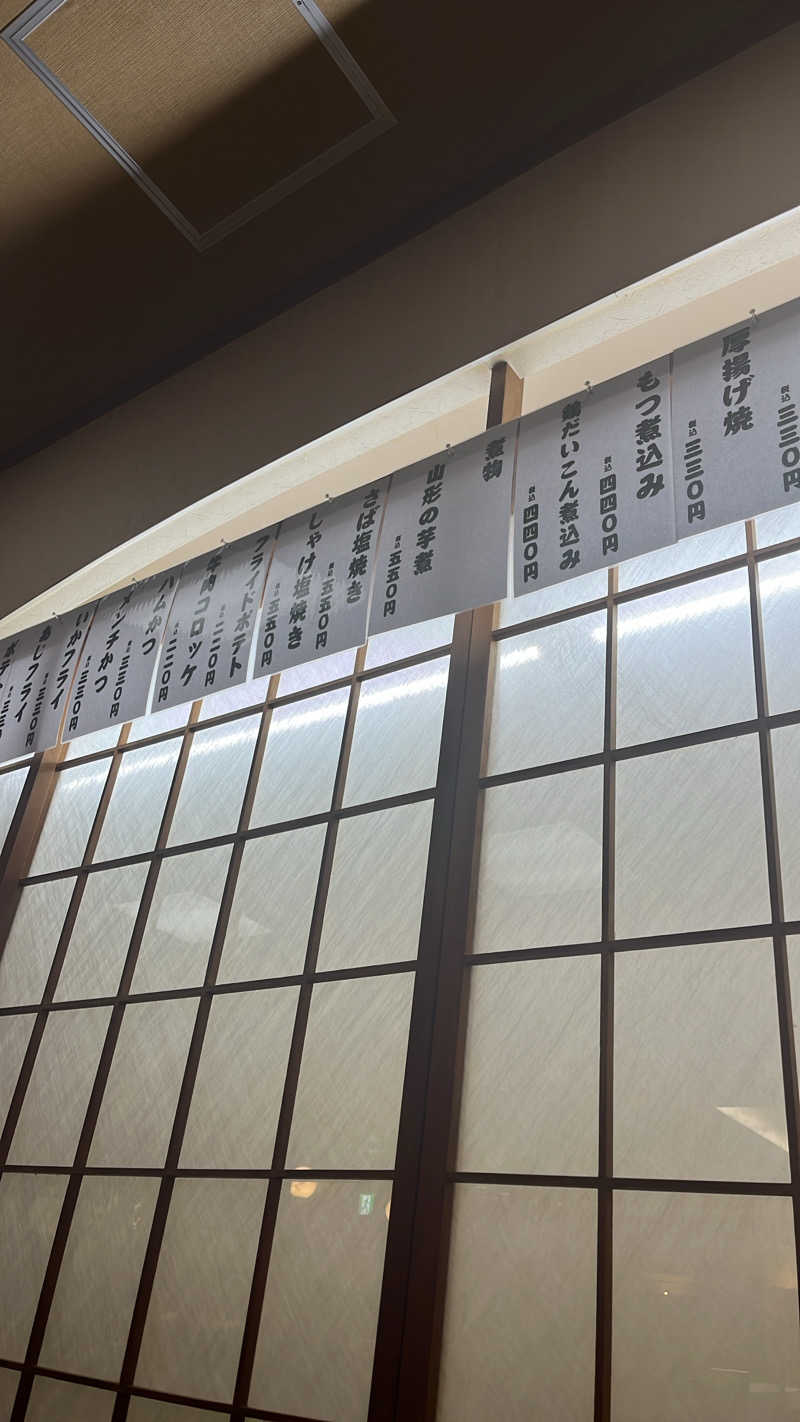 税込三三〇円
厚揚げ焼
税込三三〇円
もつ煮込み
税込四四〇円
鶏だいこん煮込み
税込四四〇円
煮物
山形の芋煮
税込五五〇円
さば塩焼き
税込五五〇円
しゃけ塩焼き
税込五五〇円
フライドポテト
税込二二〇円
牛肉コロッケ
税込二二〇円
ハムかつ
税込三三〇円
メンチかつ
税込三三〇円
いかフライ
税込三三〇円
あじフライ